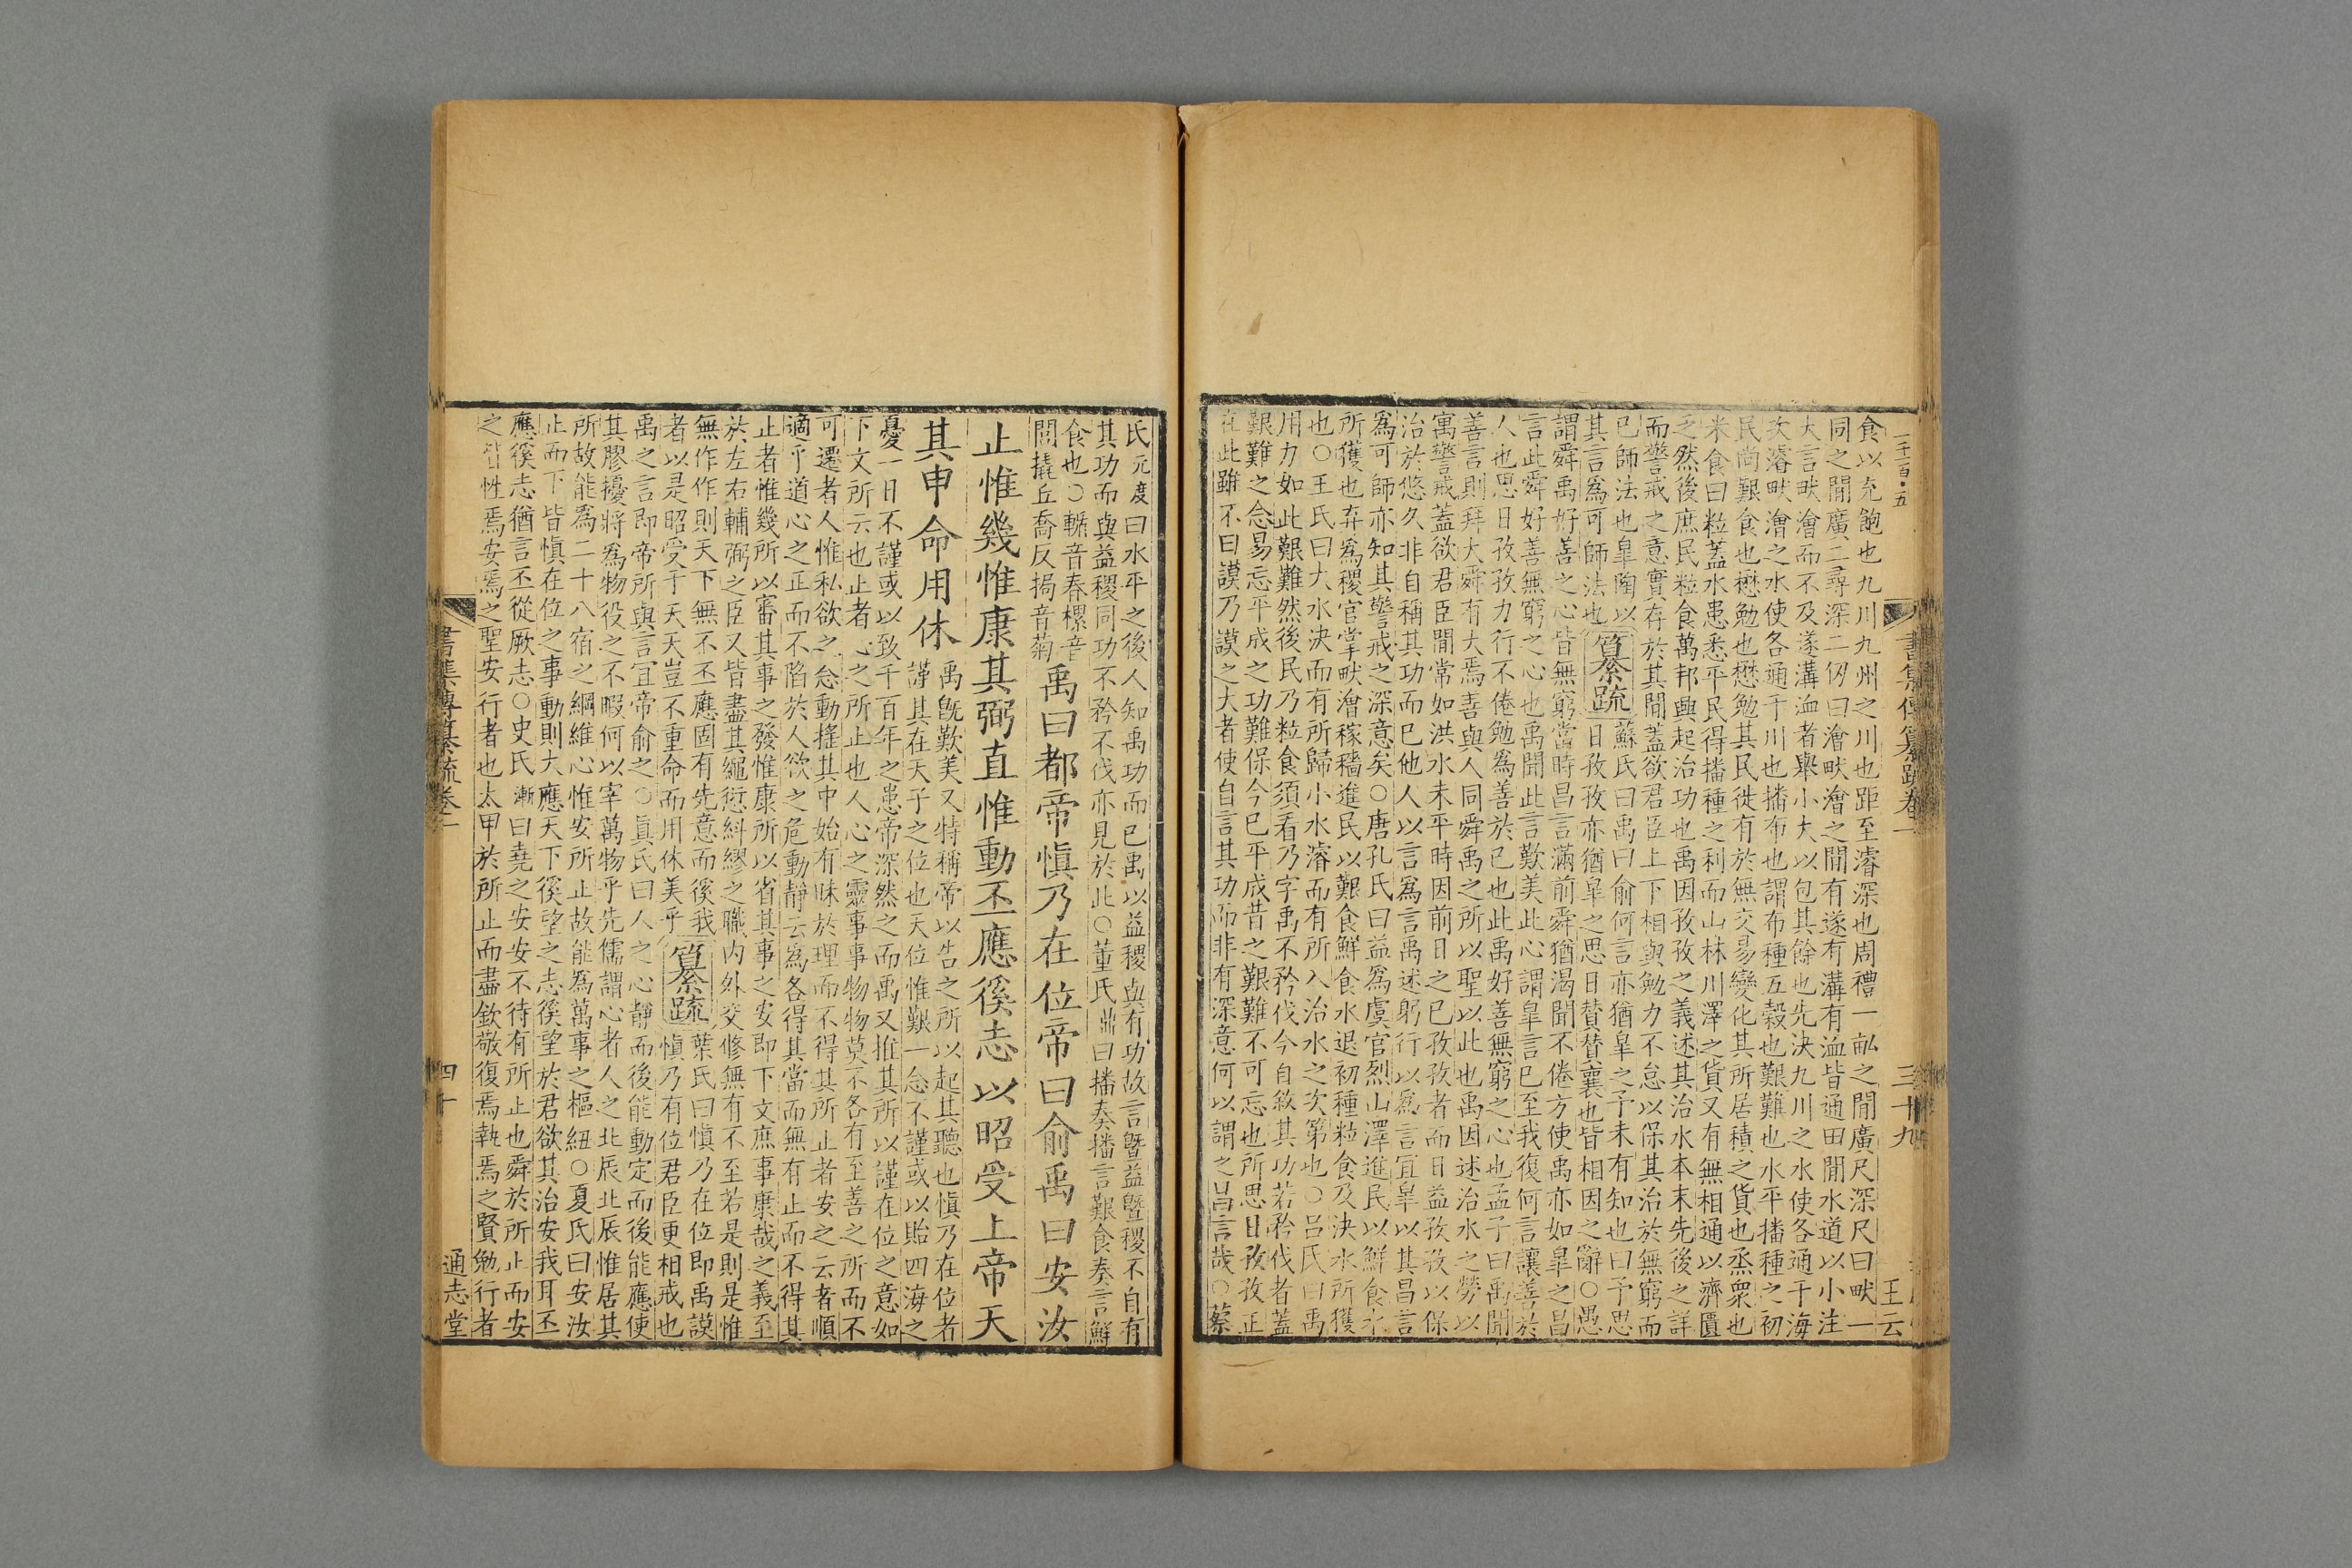 書集傳纂疏卷一
三十九
王云
食以充飽也九川九州之川也距至濬深也周禮一畝之閒廣尺深尺曰畎一
同之閒廣二尋深二仞曰澮畎澮之閒有遂有溝有洫皆通田閒水道以小注
大言畎澮而不及遂溝洫者舉小大以包其餘也先決九川之水使各通于海
次濬畎澮之水使各通于川也播布也謂布種五穀也艱難也水平播種之初
民尚艱食也懋勉也懋勉其民徙有於無交易變化其所居積之貨也烝衆也
米食曰粒蓋水患悉平民得播種之利而山林川澤之貨又有無相通以濟匱
乏然後庶民粒食萬邦興起治功也禹因孜孜之義述其治水本末先後之詳
而警戒之意實存於其閒蓋欲君臣上下相與勉力不怠以保其治於無窮而
已師法也皐陶以
其言爲可師法也纂疏蘇氏曰禹曰俞何言亦猶皐之予未有知也曰予思
日孜孜亦猶皐之思日贊贊襄也皆相因之辭○愚
謂舜禹好善之心皆無窮當時昌言滿前舜猶渴聞不倦方使禹亦如皐之昌
言此舜好善無窮之心也禹聞此言歎美此心謂皐言已至我復何言讓善於
人也思日孜孜力行不倦勉爲善於已也此禹好善無窮之心也孟子曰禹聞
善言則拜大舜有大焉善與人同舜禹之所以聖以此也禹因述治水之勞以
寓警戒蓋欲君臣閒常如洪水未平時因前日之已孜孜者而日益孜孜以保
治於悠久非自稱其功而已他人以言爲言禹述躬行以爲言宜皐以其昌言
爲可師亦知其警戒之深意矣○唐孔氏曰益爲虞官烈山澤進民以鮮食水
所獲也弃爲稷官掌畎澮稼穡進民以艱食鮮食水退初種粒食及決水所獲
也○王氏曰大水決而有所歸小水濬而有所入治水之次第也○呂氏曰禹
用力如此艱難然後民乃粒食須看乃字禹不矜伐今自敘其功若矜伐者蓋
艱難之念易忘平成之功難保今已平成昔之艱難不可忘也所思日孜孜正
在此雖不曰謨乃謨之大者使自言其功而非有深意何以謂之昌言哉○蔡
氏元度曰水平之後人知禹功而已禹以益稷與有功故言曁益曁稷不自有
其功而與益稷同功不矜不伐亦見於此○董氏鼎曰播奏播言艱食奏言鮮
食也○輴音春樏音
閭撬丘喬反挶音菊禹曰都帝愼乃在位帝曰俞禹曰安汝
止惟幾惟康其弼直惟動丕應徯志以昭受上帝天
其申命用休禹既歎美又特稱帝以告之所以起其聽也愼乃在位者
謹其在天子之位也天位惟艱一念不謹或以貽四海之
憂一日不謹或以致千百年之患帝深然之而禹又推其所以謹在位之意如
下文所云也止者心之所止也人心之靈事事物物莫不各有至善之所而不
可遷者人惟私欲之念動搖其中始有昧於理而不得其所止者安之云者順
適乎道心之正而不陷於人欲之危動靜云爲各得其當而無有止而不得其
止者惟幾所以審其事之發惟康所以省其事之安即下文庶事康哉之義至
於左右輔弼之臣又皆盡其繩愆糾繆之職內外交修無有不至若是則是惟
無作作則天下無不丕應固有先意而徯我
者以是昭受于天天豈不重命而用休美乎纂疏葉氏曰愼乃在位即禹謨
愼乃有位君臣更相戒也
禹之言即帝所與言宜帝俞之○眞氏曰人之心靜而後能動定而後能應使
其膠擾將爲物役之不暇何以宰萬物乎先儒謂心者人之北辰北辰惟居其
所故能爲二十八宿之綱維心惟安所止故能爲萬事之樞紐○夏氏曰安汝
止而下皆愼在位之事動則大應天下徯望之志徯望於君欲其治安我耳丕
應徯志猶言丕從厥志○史氏漸曰堯之安安不待有所止也舜於所止而安
之皆性焉安焉之聖安行者也太甲於所止而盡欽敬復焉執焉之賢勉行者
書集傳纂疏卷一
四十
通志堂